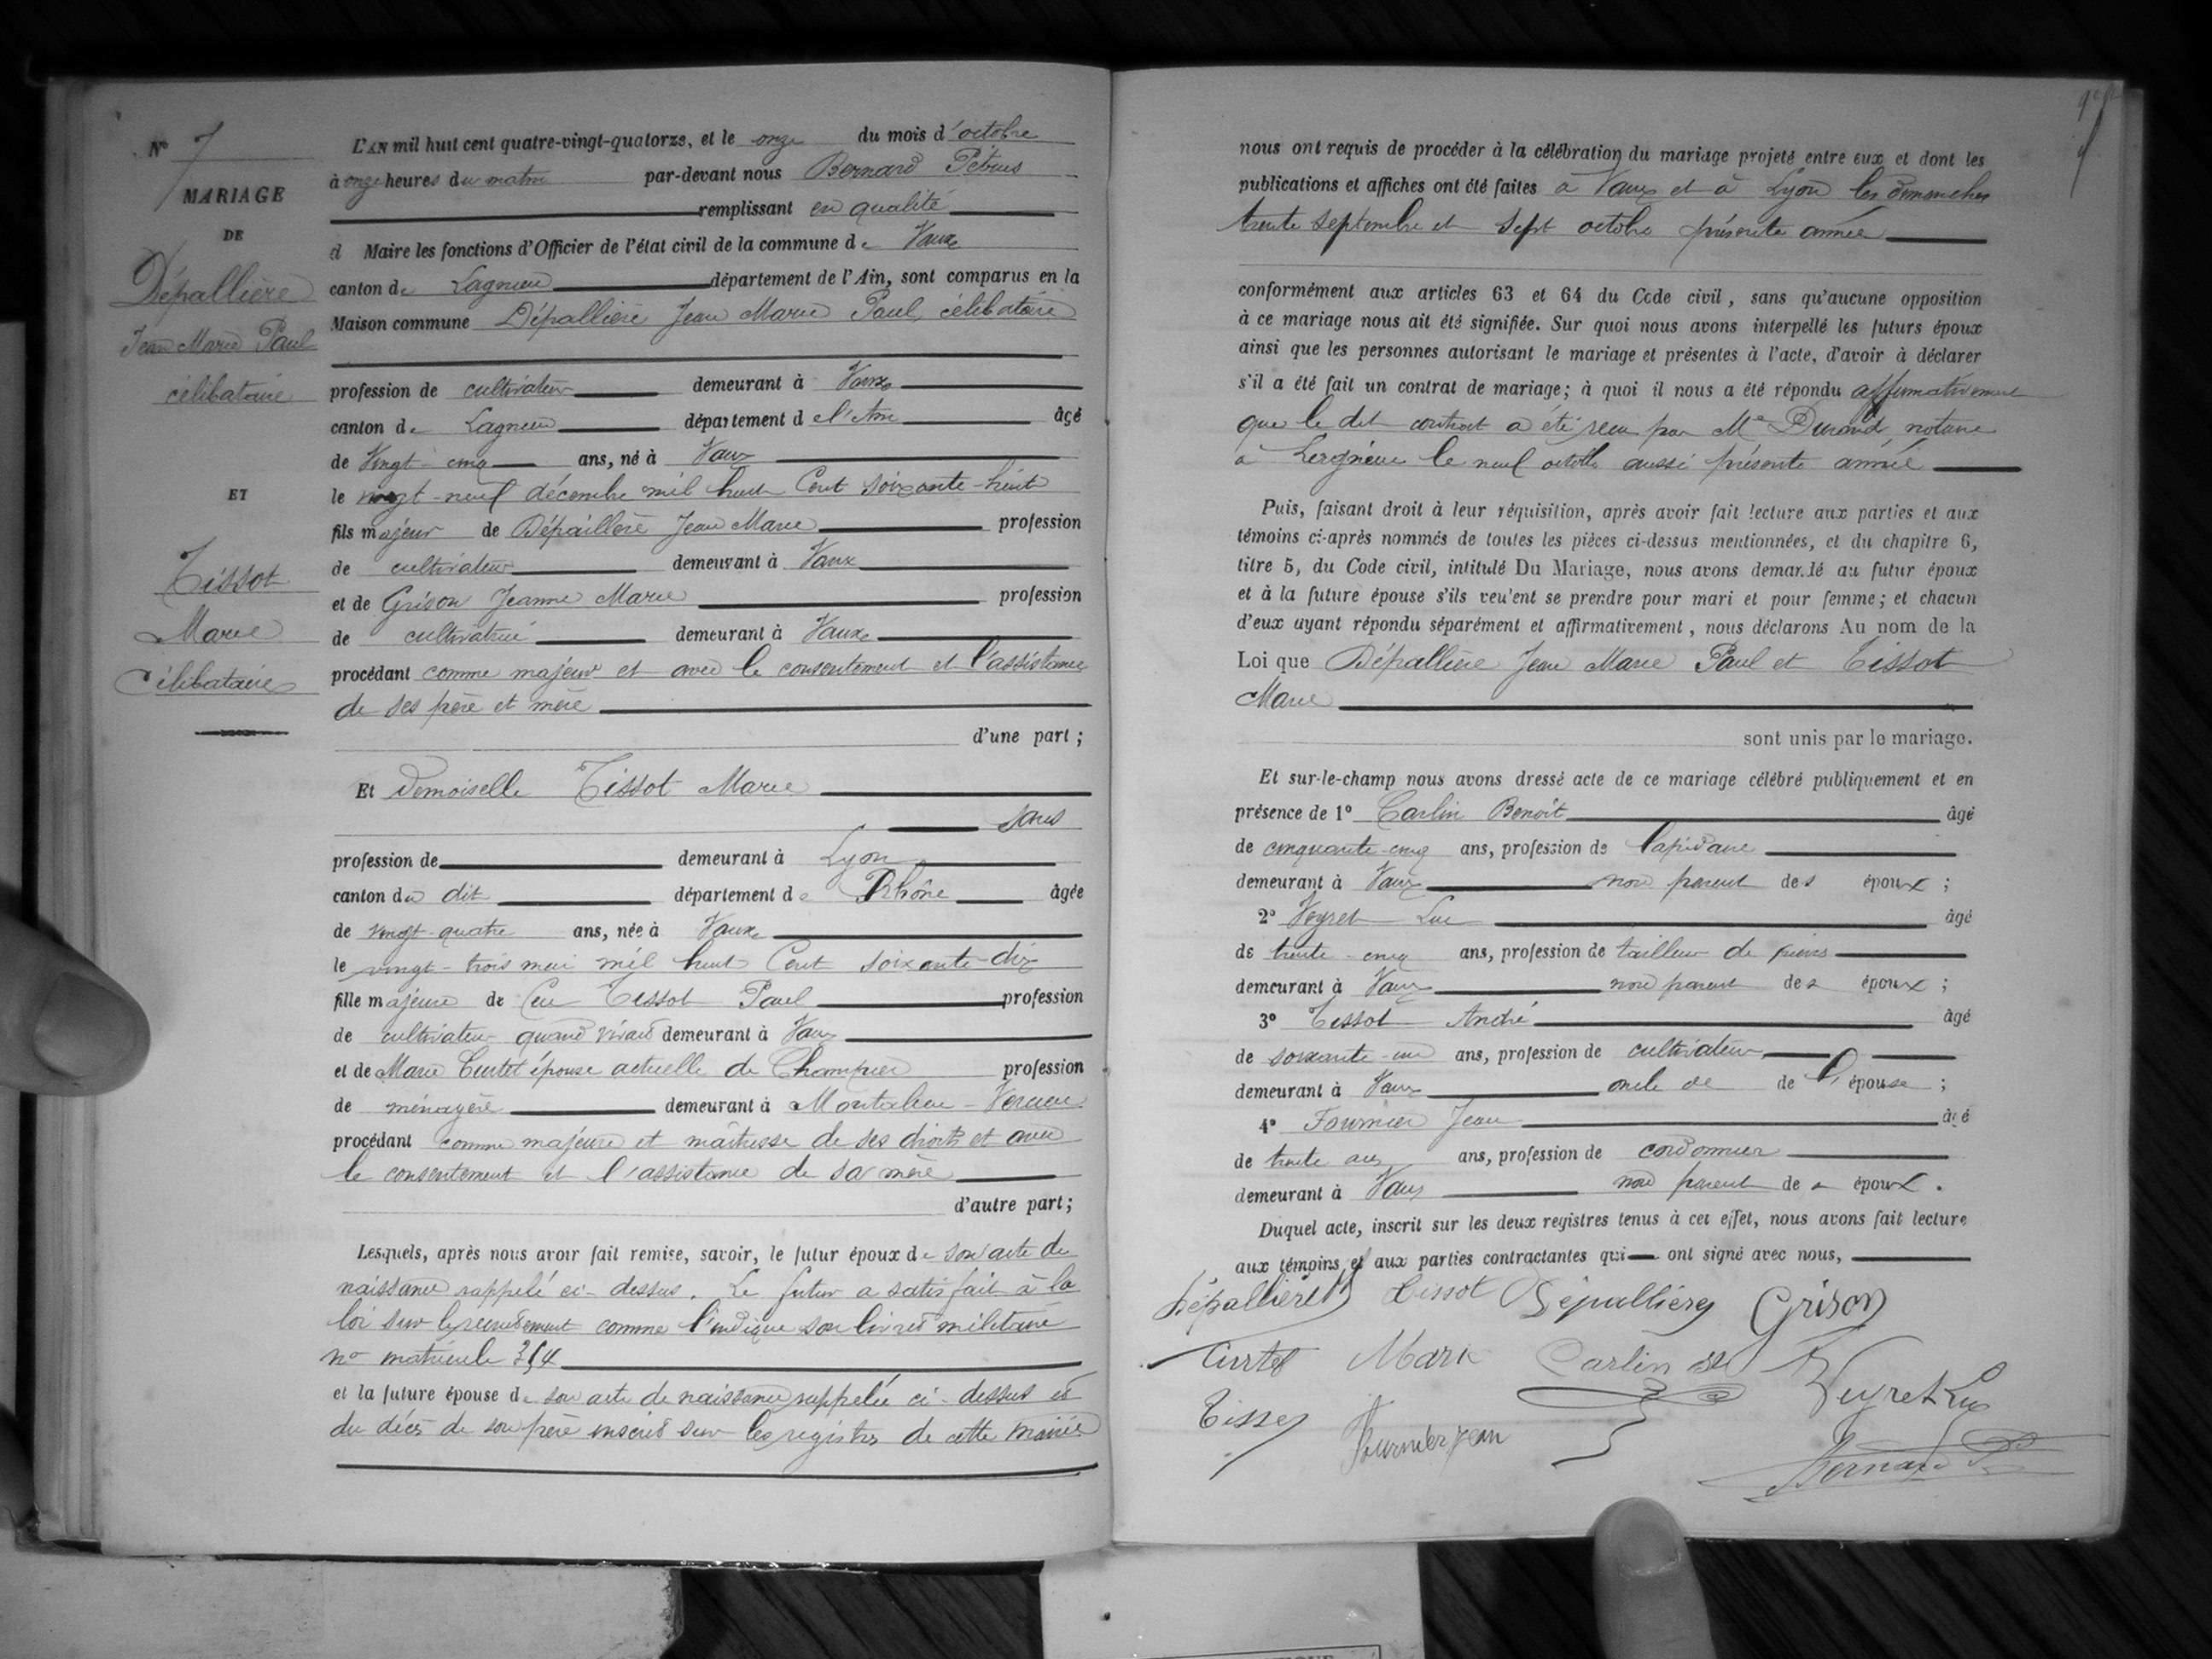 N° 7
MARIAGE
DE
Dépallière
Jean Marie Paul
célibataire
ET
Tissot
Marie
Célibataire
L'AN mil huit cent quatre-vingt-quatorze, et le onze du mois d'octobre
à onze heures du matin par-devant nous Bernard Pétrus
remplissant en qualité
d Maire les fonctions d'Officier de l'état civil de la commune de Vaux
canton de Lagnieu département de l'Ain, sont comparus en la
Maison commune Dépallière Jean Marie Paul, célibataire
profession de cultivateur demeurant à Vaux
canton de Lagnieu département d el'Ain âgé
de Vingt-cinq ans, né à Vaux
le vingt-neuf décembre mil huit Cent soixante-huit
fils majeur de Dépaillère Jean Marie profession
de cultivateur demeurant à Vaux
et de Grison Jeanne Marie profession
de cultivatrice demeurant à Vaux
procédant comme majeur et avec le consentement et l'assistance
de ses père et mère
d'une part ;
Et Demoiselle Tissot Marie
sans
profession de demeurant à Lyon
canton du dit département de Rhône âgée
de vingt-quatre ans, née à Vaux
le vingt-trois mai mil huit Cent soixante-dix
fille majeure de feu Tissot Paul profession
de cultivateur quand vivait demeurant à Vaux
et de Marie Curtet épouse actuelle de Champier profession
de ménagère demeurant à Montalieu-Vercieu
procédant comme majeure et maîtresse de ses droits et avec
le consentement et l'assistance de sa mère
d'autre part ;
Lesquels, après nous avoir fait remise, savoir, le futur époux de son acte de
naissance rappelé ci-dessus. Le futur a satisfait à la
loi sur le recrutement comme l'indique son livret militaire
n° matricule
et la future épouse de son acte de naissance rappelée ci-dessus et
du décès de son père inscrit sur les registres de cette mairie
nous ont requis de procéder à la célébration du mariage projeté entre eux et dont les
publications et affiches ont été faites à Vaux et à Lyon les dimanches
trente septembre et sept octobre présente année
conformément aux articles 63 et 64 du Code civil, sans qu'aucune opposition
à ce mariage nous ait été signifiée. Sur quoi nous avons interpellé les futurs époux
ainsi que les personnes autorisant le mariage et présentes à l'acte, d'avoir à déclarer
s'il a été fait un contrat de mariage ; à quoi il nous a été répondu affirmativement
que le dit contrat a été reçu par Me Durand, notaire
à le neuf octobre aussi présente année
Puis, faisant droit à leur réquisition, après avoir fait lecture aux parties et aux
témoins ci-après nommés de toutes les pièces ci-dessus mentionnées, et du chapitre 6,
titre 5, du Code civil, intitulé Du Mariage, nous avons demandé au futur époux
et à la future épouse s'ils veulent se prendre pour mari et pour femme ; et chacun
d'eux ayant répondu séparément et affirmativement, nous déclarons Au nom de la
Loi que Dépallière Jean Marie Paul et Tissot
Marie
sont unis par le mariage.
Et sur-le-champ nous avons dressé acte de ce mariage célébré publiquement et en
présence de 1° Carlin Benoît âgé
de cinquante-cinq ans, profession de lapidaire
demeurant à Vaux non parent des époux ;
2° Veyret Luc âgé
de trente-cinq ans, profession de tailleur de pierres
demeurant à Vaux non parent des époux ;
3° Tissot André âgé
de soixante-un ans, profession de cultivateur
demeurant à Vaux oncle de de l'épouse ;
4° Fournier Jean âgé
de trente ans ans, profession de cordonnier
demeurant à Vaux non parent des époux.
Duquel acte, inscrit sur les deux registres tenus à cet effet, nous avons fait lecture
aux témoins et aux parties contractantes qui ont signé avec nous,
Dépallière Tissot Dépallière Grison
Curtet Marie Carlin Veyret Luc
Tissot Fournier Jean Bernard